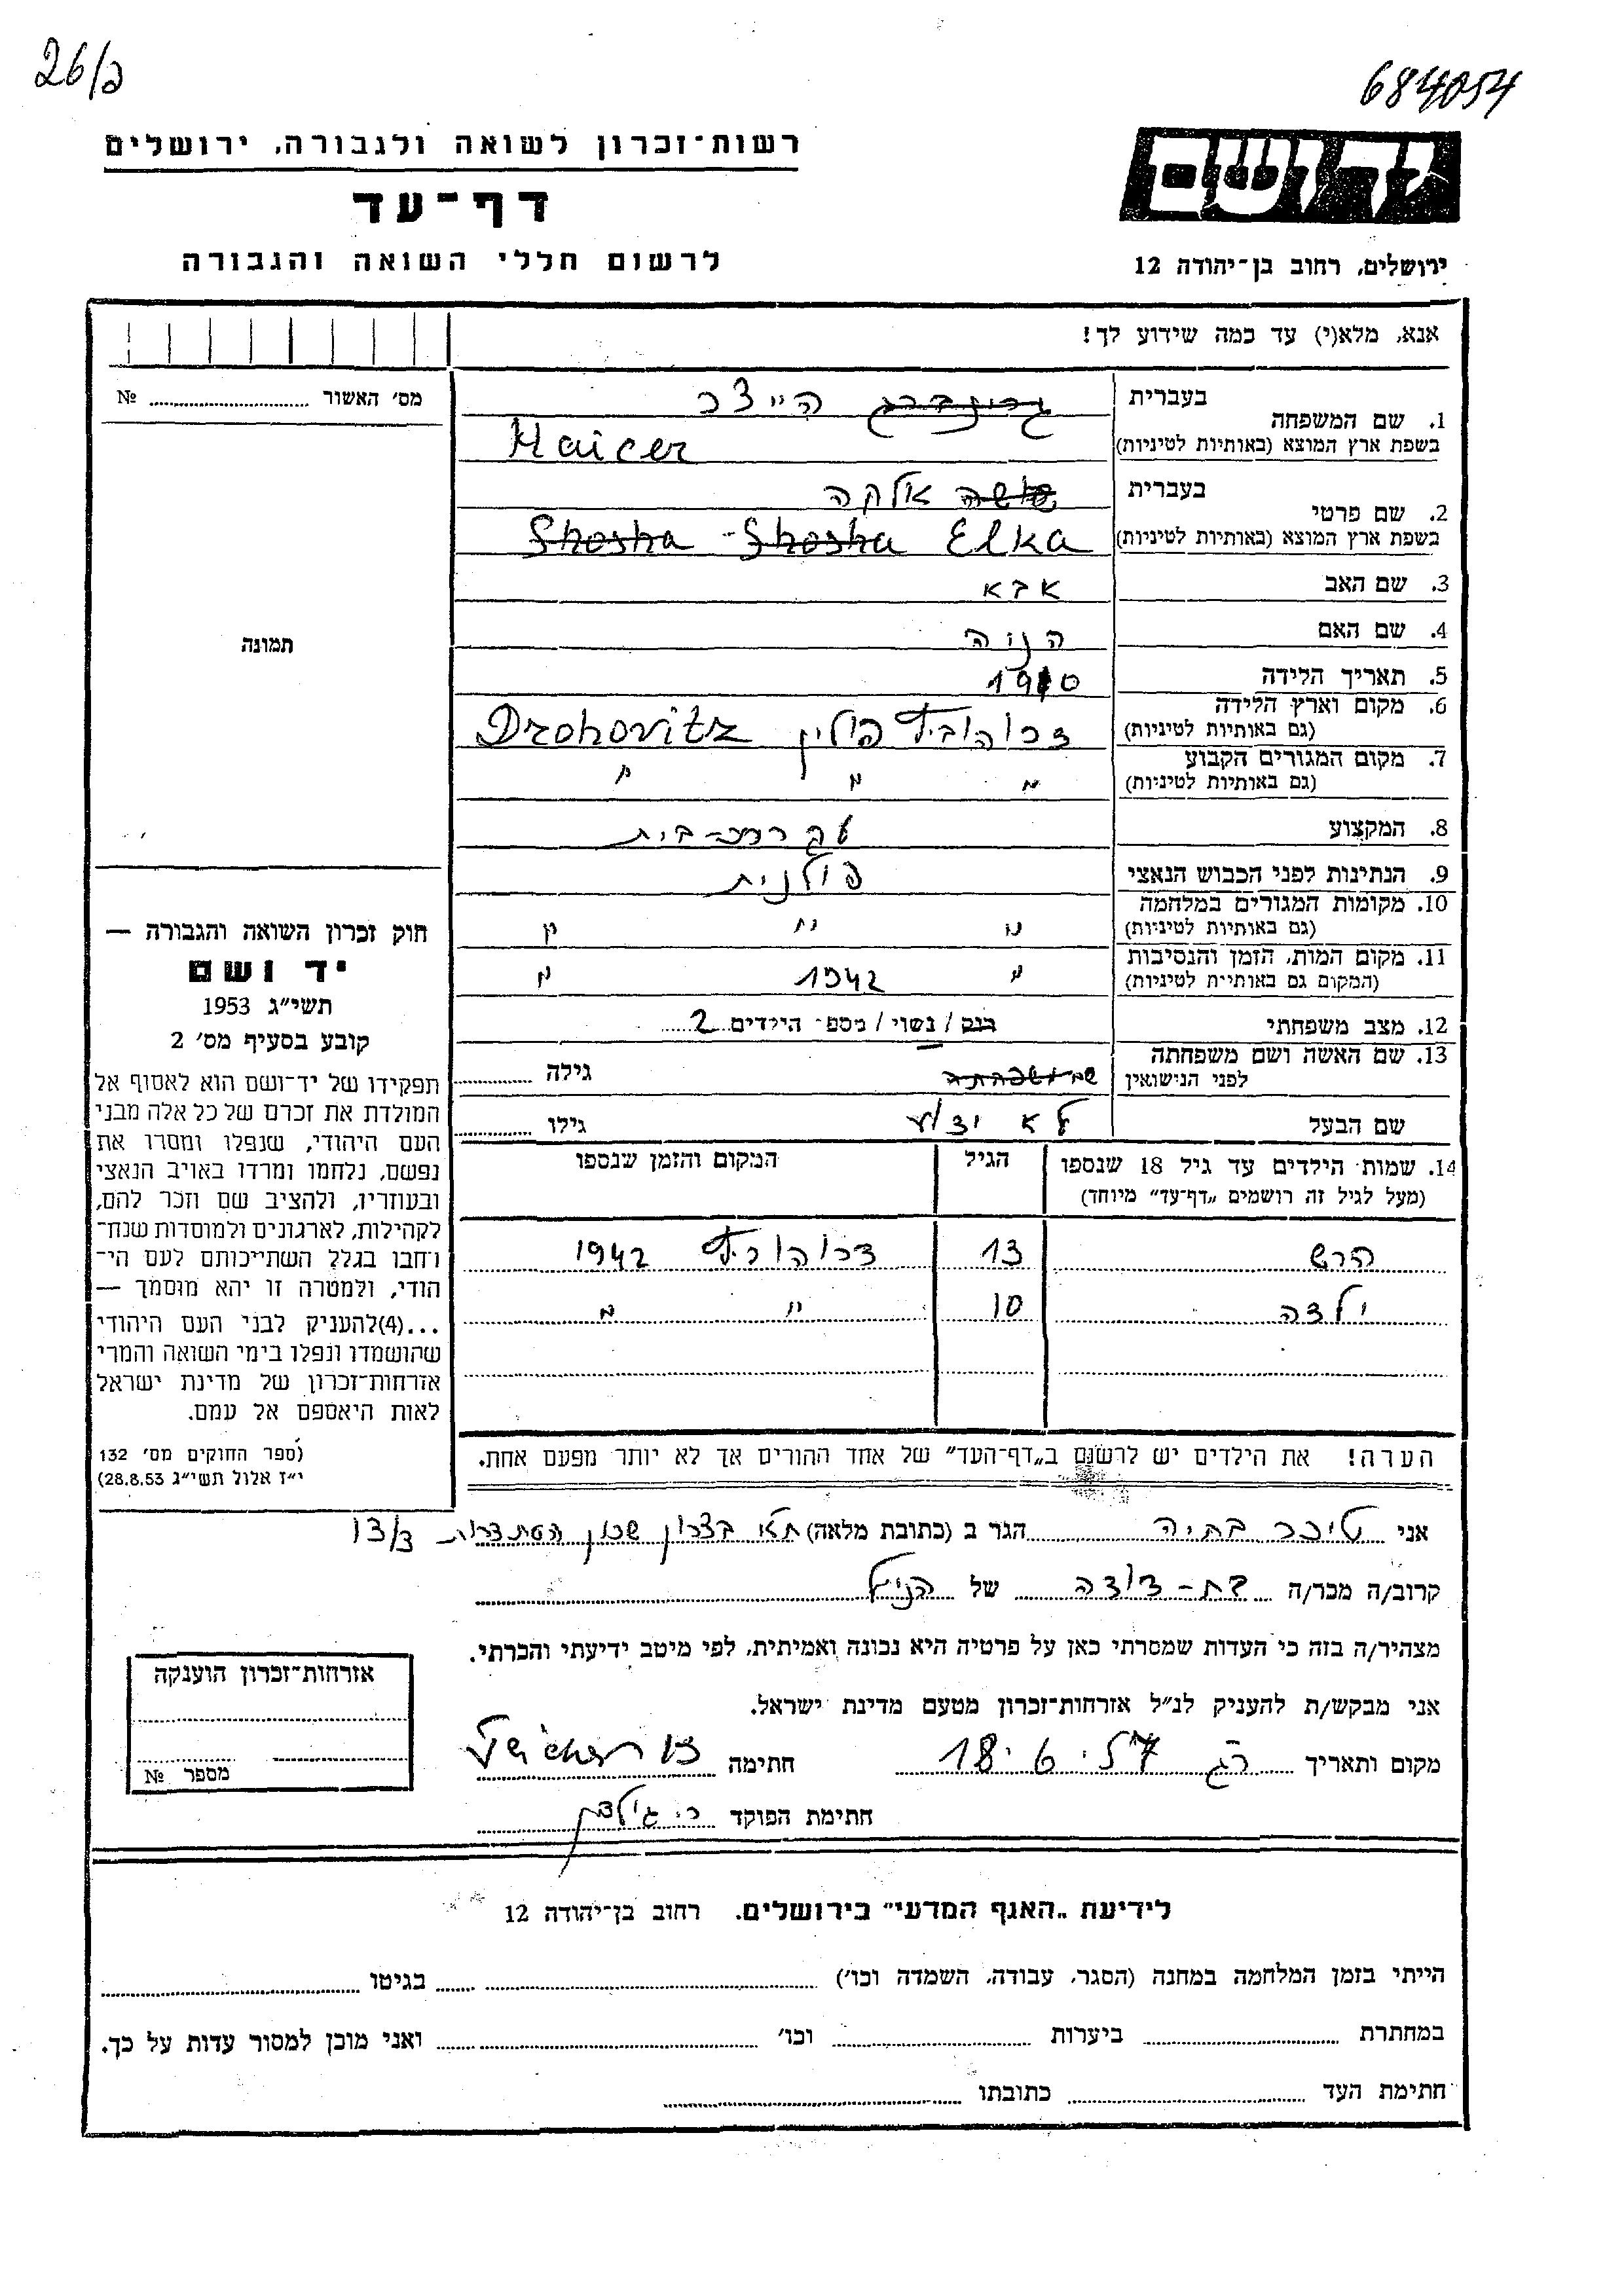 26/ב
684054
רשות־זכרון לשואה ולגבורה, ירושלים
דף־עד
לרשום חללי השואה והגבורה
יד ושם
ירושלים, רחוב בן־יהודה 12
אנא, מלא(י) עד כמה שידוע לך!
מס׳ האשור № ..........
1. שם המשפחה
בעברית
גרינברג הייצר
בשפת ארץ המוצא (באותיות לטיניות)
Haicer
2. שם פרטי
בעברית
שושה אלקה
בשפת ארץ המוצא (באותיות לטיניות)
Shosha - Shosha Elka
3. שם האב אבא
4. שם האם הניה
5. תאריך הלידה 1910
6. מקום וארץ הלידה
(גם באותיות לטיניות)
דרוהוביץ פולין Drohovitz
7. מקום המגורים הקבוע
(גם באותיות לטיניות)
" " "
8. המקצוע עקרת-בית
9. הנתינות לפני הכבוש הנאצי פולנית
10. מקומות המגורים במלחמה
(גם באותיות לטיניות)
" " "
11. מקום המות, הזמן והנסיבות
(המקום גם באותיות לטיניות)
" 1942 "
12. מצב משפחתי רנק / נשוי / מספר הילדים 2
13. שם האשה ושם משפחתה
לפני הנישואין
גילה ..........
שם הבעל לא ידוע גילו ..........
14. שמות הילדים עד גיל 18 שנספו הגיל המקום והזמן שנספו
(מעל לגיל זה רושמים „דף־עד״ מיוחד)
הרש 13 דרוהוביץ 1942
ילדה 10 " "
הערה! את הילדים יש לרשום ב„דף־העד״ של אחד ההורים אך לא יותר מפעם אחת.
תמונה
חוק זכרון השואה והגבורה —
יד ושם
תשי״ג 1953
קובע בסעיף מס׳ 2
תפקידו של יד־ושם הוא לאסוף אל
המולדת את זכרם של כל אלה מבני
העם היהודי, שנפלו ומסרו את
נפשם, נלחמו ומרדו באויב הנאצי
ובעוזריו, ולהציב שם וזכר להם,
לקהילות, לארגונים ולמוסדות שנח־
רחבו בגלל השתייכותם לעם הי־
הודי, ולמטרה זו יהא מוסמך —
...(4)להעניק לבני העם היהודי
שהושמדו ונפלו בימי השואה והמרי
אזרחות־זכרון של מדינת ישראל
לאות היאספם אל עמם.
(ספר החוקים מס׳ 132
י״ז אלול תשי״ג 28.8.53)
אני טיכר בתיה הגר ב (כתובת מלאה) ת״א בצרון שכון הסתדרות
קרוב/ה מכר/ה בת-דודה של הנ״ל
מצהיר/ה בזה כי העדות שמסרתי כאן על פרטיה היא נכונה ואמיתית, לפי מיטב ידיעתי והכרתי.
אני מבקש/ת להעניק לנ״ל אזרחות־זכרון מטעם מדינת ישראל.
מקום ותאריך רג 18.6.57 חתימה Teicher
חתימת הפוקד
אזרחות־זכרון הוענקה
מספר №
לידיעת „האגף המדעי״ בירושלים. רחוב בן־יהודה 12
הייתי בזמן המלחמה במחנה (הסגר, עבודה, השמדה וכו׳) .......... בגיטו ..........
במחתרת .......... ביערות .......... וכו׳ .......... ואני מוכן למסור עדות על כך.
חתימת העד .......... כתובתו ..........